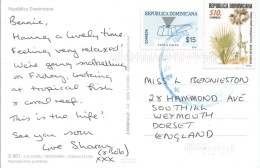 República Dominicana
Bennie,
Having a lively time.
Feeling very relaxed!
We're going snorkelling
on Friday, looking
at tropical fish
& coral reef.
This is the life!
See you soon
Love Sharon
(& Bob)
xxx
REPUBLICA DOMINICANA
CORREOS
$15
REPUBLICA DOMINICANA
$10
MISS L BENNIESTON
28 HAMMOND AVE
SOUTHILL
WEYMOUTH
DORSET
ENGLAND